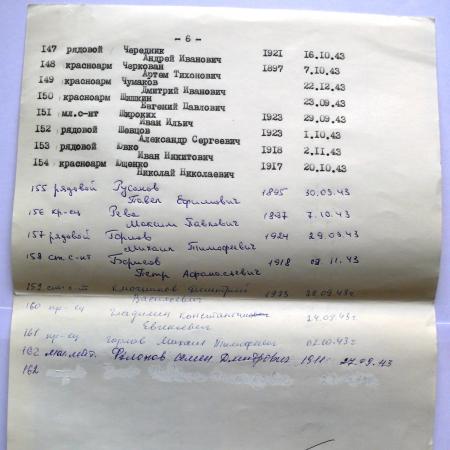 - 6 -
147 рядовой Чередник 1921 16.10.43
Андрей Иванович
148 красноарм Черкован 1897 7.10.43
Артем Тихонович
149 красноарм Чумаков 22.12.43
Дмитрий Иванович
150 красноарм Шишкин 23.09.43
Евгений Павлович
151 мл.с-нт Широких 1923 29.09.43
Иван Ильич
152 рядовой Шевцов 1923 1.10.43
Александр Сергеевич
153 рядовой Ювко 1918 2.11.43
Иван Никитович
154 красноарм Ющенко 1917 20.10.43
Николай Николаевич
155 рядовой Русанов 1895 30.09.43
Павел Ефимович
156 кр-ец Рева 1897 7.10.43
Максим Павлович
157 рядовой Горлов 1924 29.09.43
Михаил Тимофеевич
158 ст. с-нт Борисов 1918 02.11.43
Петр Афанасьевич
159 ст. с-т Дмитрий 1923 28.09.43г
Васильевич
160 кр-ец Константин 24.09.43г.
Евгеньевич
161 кр-ец Горлов Михаил Тимофеевич 02.10.43г
162 Филонов Семен Дмитревич 1911 27.09.43
162